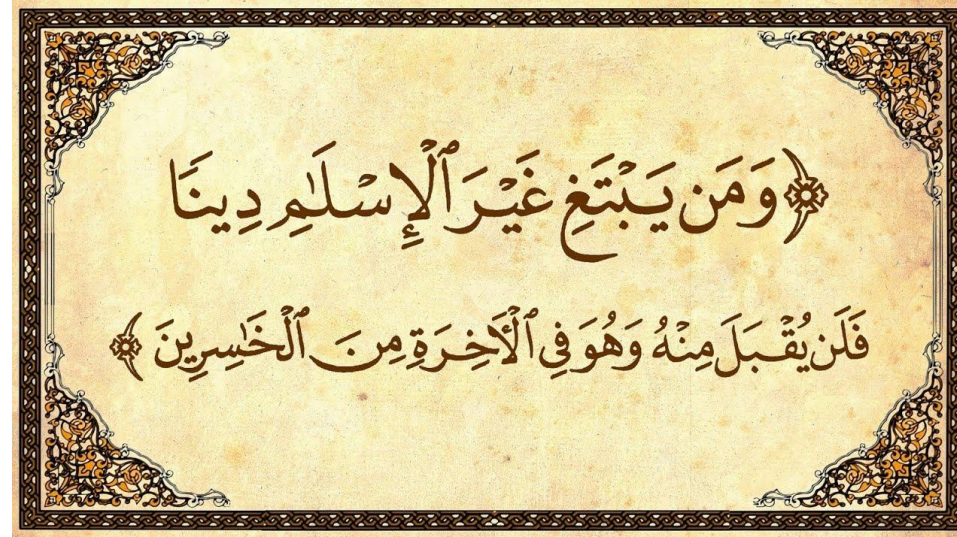 ﴿وَمَن يَبْتَغِ غَيْرَ ٱلْإِسْلَٰمِ دِينًا
فَلَن يُقْبَلَ مِنْهُ وَهُوَ فِى ٱلْأَخِرَةِ مِنَ ٱلْخَٰسِرِينَ ﴾